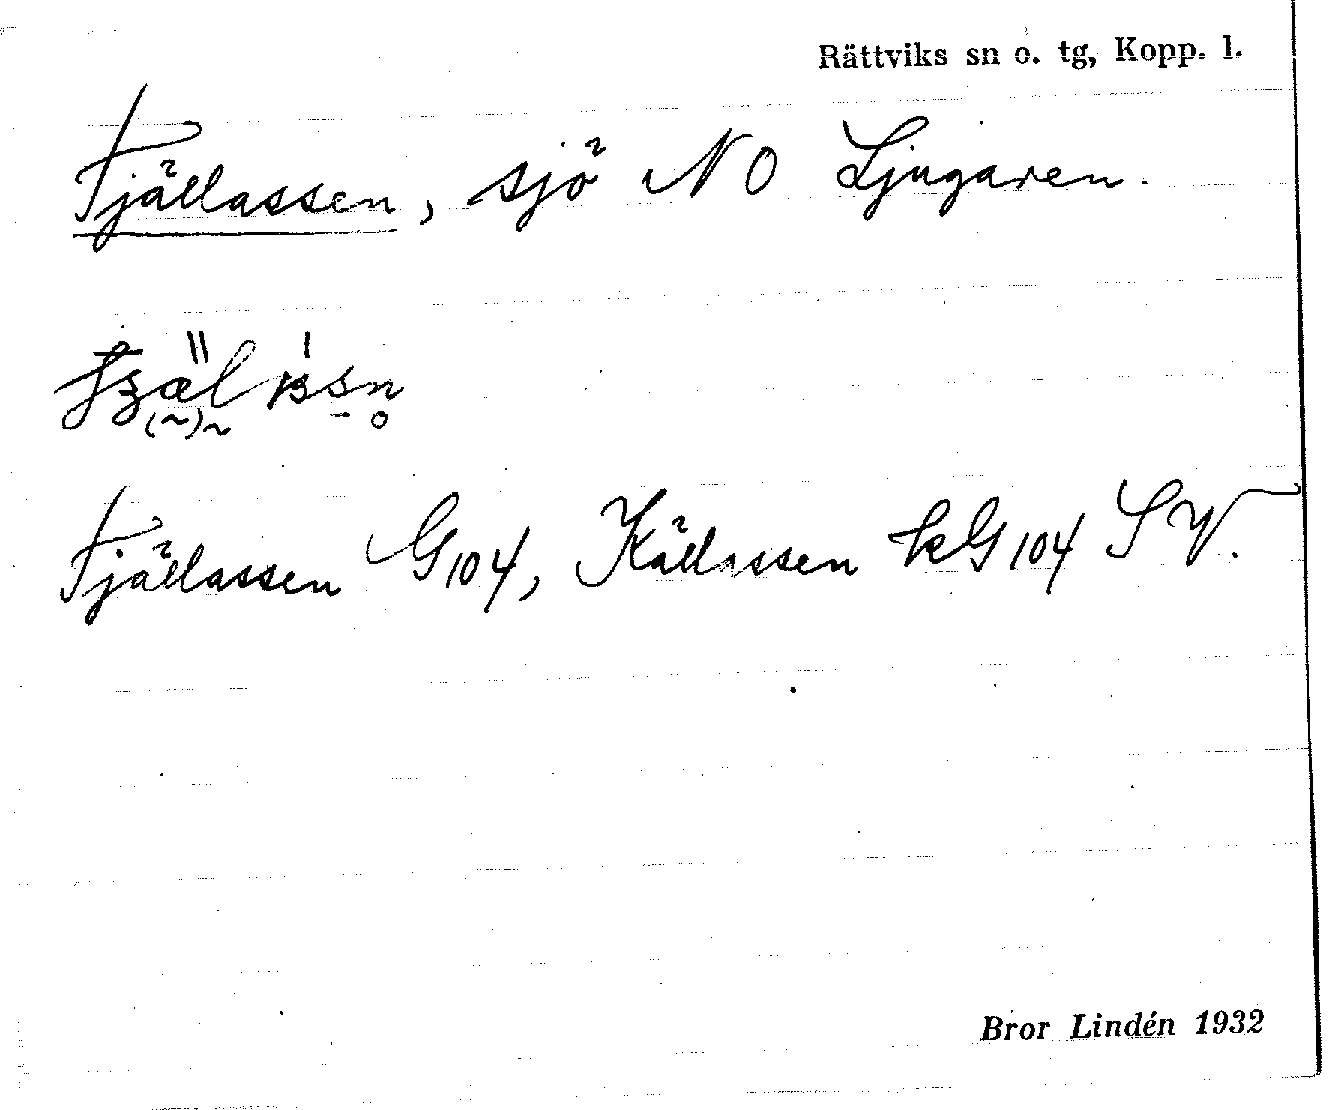 Rättviks sn o. tg, Kopp. l.
Fjällassen, sjö NO Ljugaren.
Fjällassen G104, Källassen kG104 SV.
Bror Lindén 1932